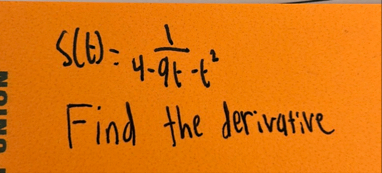 S(t) = 1/(4-9t-t²)
Find the derivative
UNION